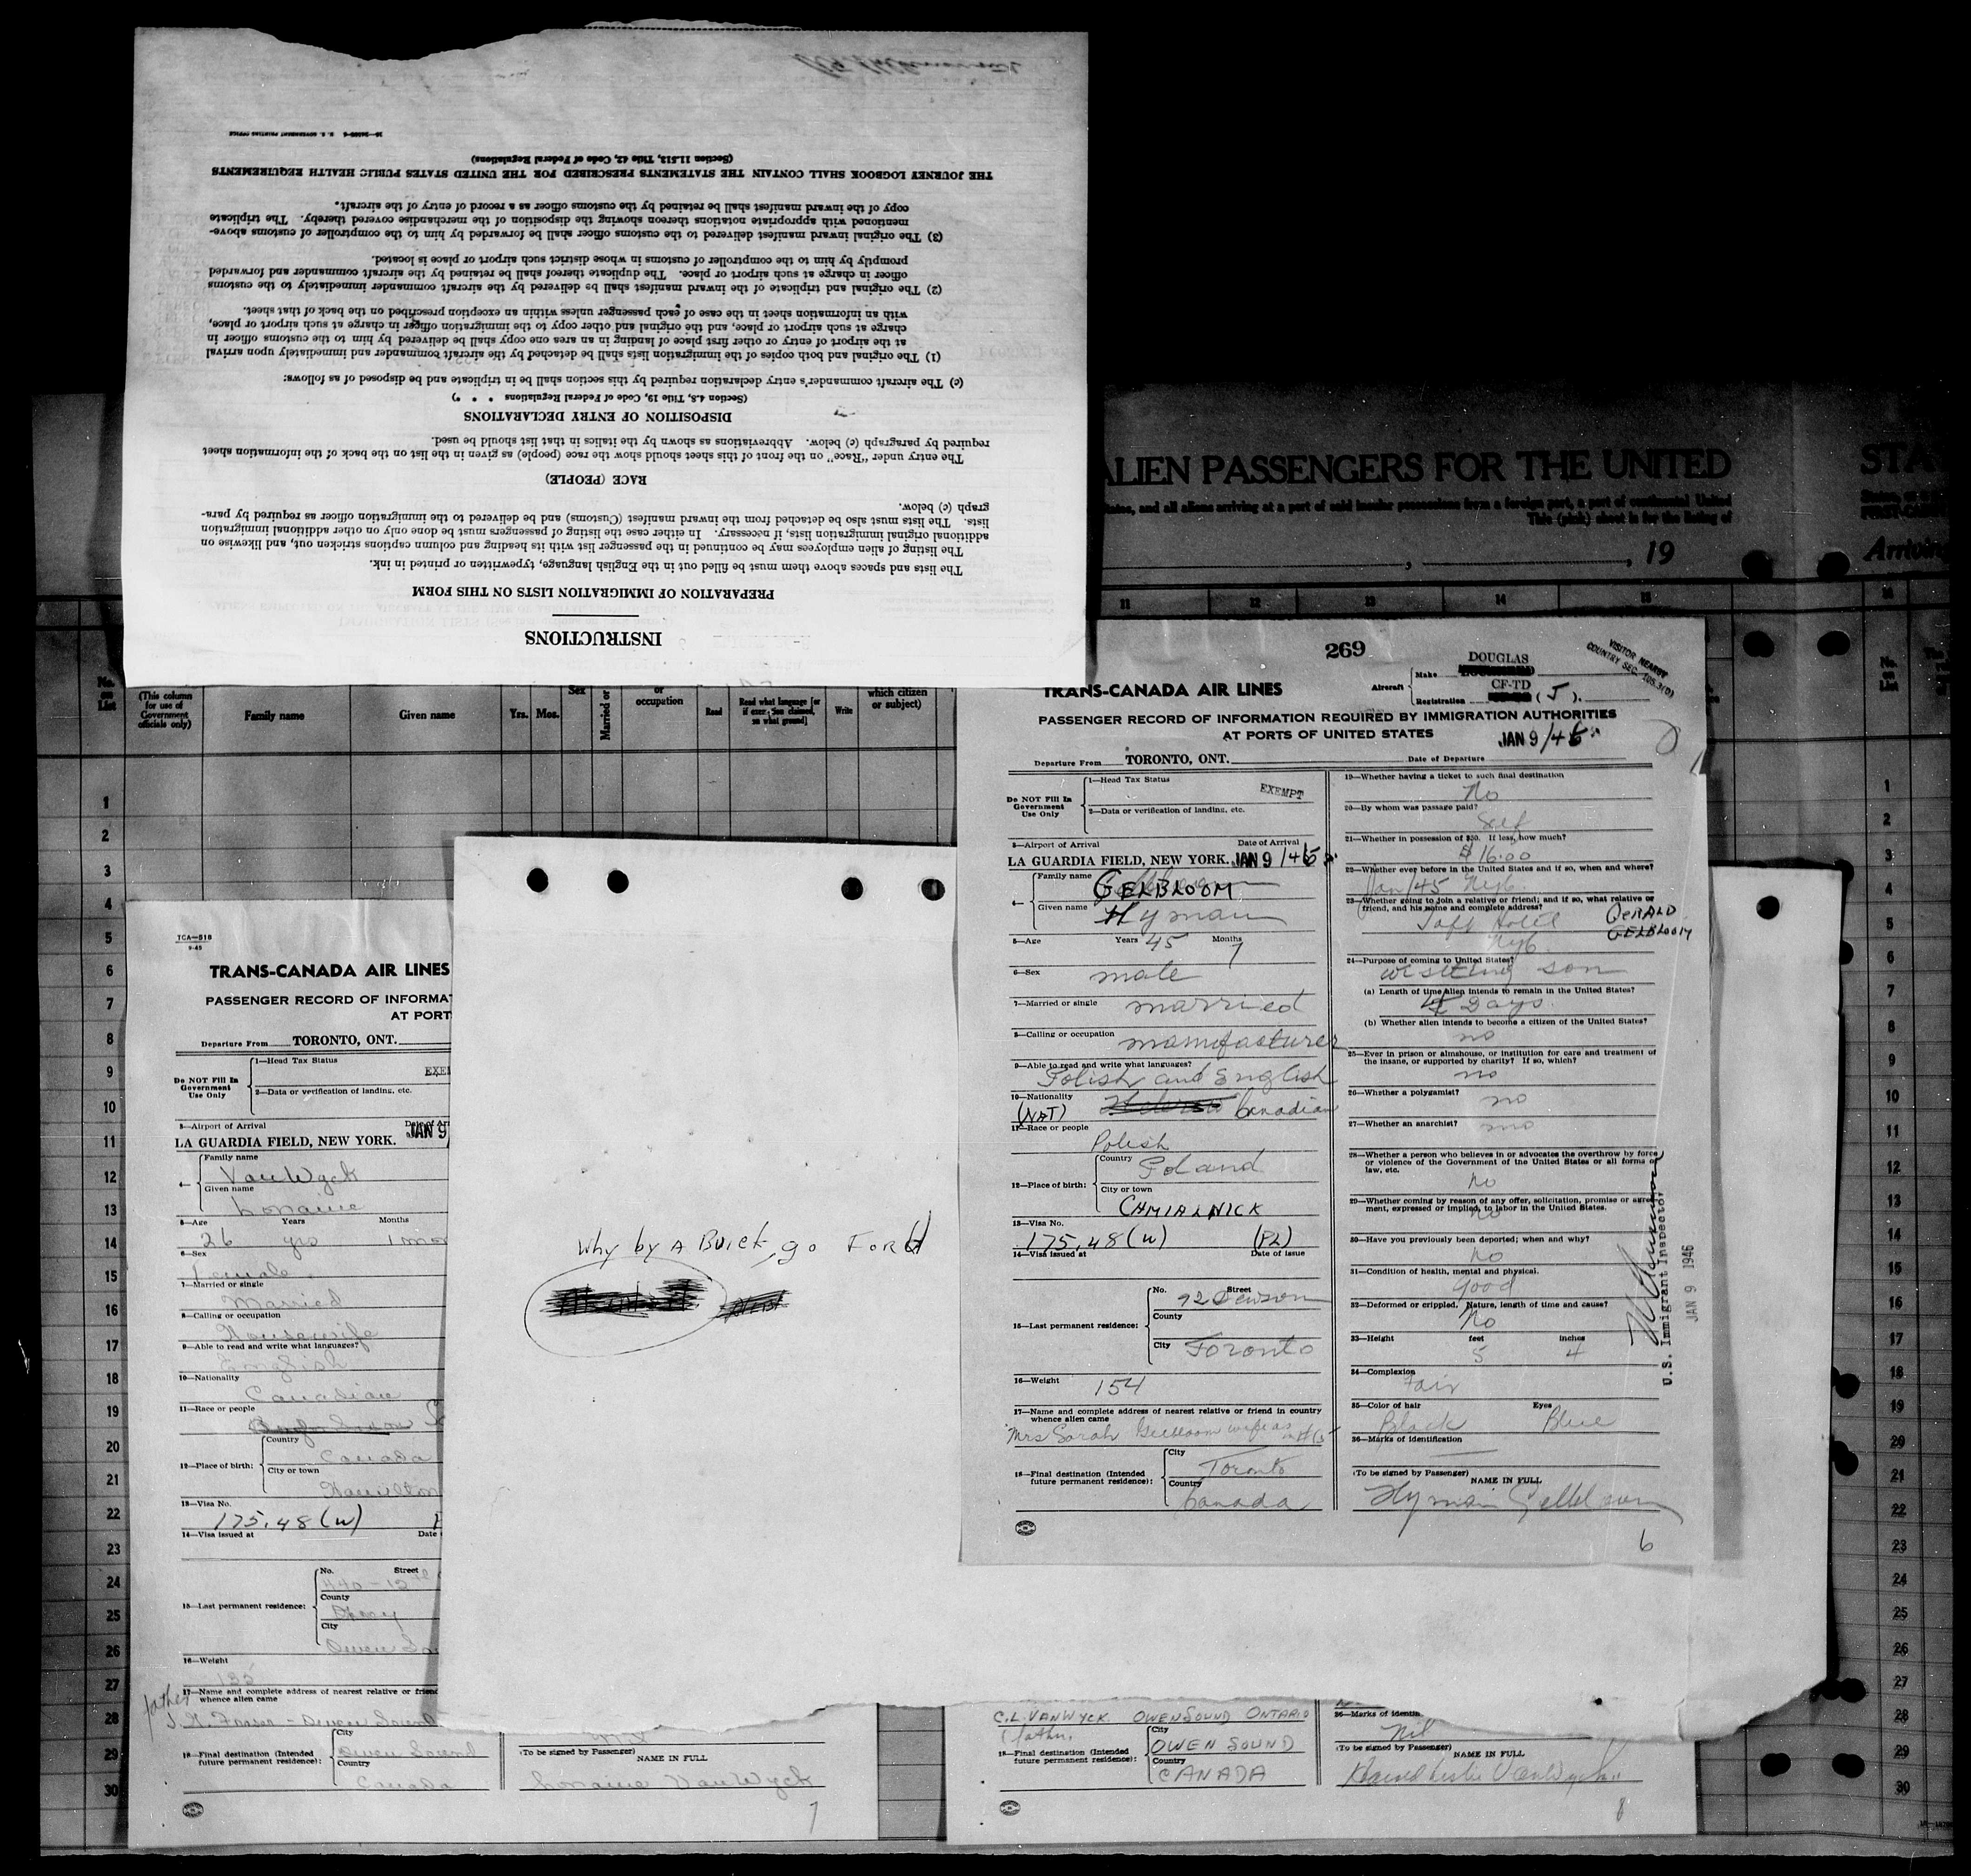 INSTRUCTIONS
PREPARATION OF IMMIGRATION LISTS ON THIS FORM
The lists and spaces above them must be filled out in the English language, typewritten or printed in ink.
The listing of alien employees may be continued in the passenger list with its heading and column captions stricken out, and likewise on
additional original immigration lists, if necessary. In either case the listing of passengers must be done only on other additional immigration
lists. The lists must also be detached from the inward manifest (Customs) and be delivered to the immigration officer as required by para-
graph (c) below.
RACE (PEOPLE)
The entry under "Race" on the front of this sheet should show the race (people) as given in the list on the back of the information sheet
required by paragraph (c) below. Abbreviations as shown by the italics in that list should be used.
DISPOSITION OF ENTRY DECLARATIONS
(Section 4.8, Title 19, Code of Federal Regulations * * *)
(c) The aircraft commander's entry declaration required by this section shall be in triplicate and be disposed of as follows:
(1) The original and both copies of the immigration lists shall be detached by the aircraft commander and immediately upon arrival
at the airport of entry or other first place of landing in an area one copy shall be delivered by him to the customs officer in
charge at such airport or place, and the original and other copy to the immigration officer in charge at such airport or place,
with an information sheet in the case of each passenger unless within an exception prescribed on the back of that sheet.
(2) The original and triplicate of the inward manifest shall be delivered by the aircraft commander immediately to the customs
officer in charge at such airport or place. The duplicate thereof shall be retained by the aircraft commander and forwarded
promptly by him to the comptroller of customs in whose district such airport or place is located.
(3) The original inward manifest delivered to the customs officer shall be forwarded by him to the comptroller of customs above-
mentioned with appropriate notations thereon showing the disposition of the merchandise covered thereby. The triplicate
copy of the inward manifest shall be retained by the customs officer as a record of entry of the aircraft.
THE JOURNEY LOGBOOK SHALL CONTAIN THE STATEMENTS PRESCRIBED FOR THE UNITED STATES PUBLIC HEALTH REQUIREMENTS
(Section 11.513, Title 42, Code of Federal Regulations)
U. S. GOVERNMENT PRINTING OFFICE
ALIEN PASSENGERS FOR THE UNITED
and all aliens arriving at a port of said insular possessions from a foreign port, a port of continental United
This (pink) sheet is for the listing of
, 19
11 12 13 14 15
No. on List
(This column for use of Government officials only)
Family name
Given name
Yrs. Mos.
Sex
Married or
or occupation
Read
Read what language [or if exemption claimed, on what ground]
Write
which citizen or subject)
1
2
3
4
5
6
7
8
9
10
11
12
13
14
15
16
17
18
19
20
21
22
23
24
25
26
27
28
29
30
STA
Arrivin
No. on List
1
2
3
4
5
6
7
8
9
10
11
12
13
14
15
16
17
18
19
20
21
22
23
24
25
26
27
28
29
30
TCA-518
9-45
TRANS-CANADA AIR LINES
PASSENGER RECORD OF INFORMAT
AT PORT
Departure From TORONTO, ONT.
Do NOT Fill In Government Use Only
1—Head Tax Status
EXEM
2—Data or verification of landing, etc.
3—Airport of Arrival
Date of Arr
LA GUARDIA FIELD, NEW YORK. JAN 9
4— Family name
VanWyck
Given name
Loraine
5—Age Years Months
26 yrs 1 mon
6—Sex
Female
7—Married or single
Married
8—Calling or occupation
Housewife
9—Able to read and write what languages?
English
10—Nationality
Canadian
11—Race or people
12—Place of birth: Country
Canada
City or town
Hamilton
13—Visa No.
175.48 (w)
14—Visa issued at Date
15—Last permanent residence: No. Street
County
City
Owen So
16—Weight
135
17—Name and complete address of nearest relative or friend
whence alien came
father
Owen Sound
18—Final destination (Intended future permanent residence): City
Owen Sound
Country
Canada
(To be signed by Passenger)
NAME IN FULL
Loraine VanWyck
7
Why by A Buick, go Ford
269
TRANS-CANADA AIR LINES
Aircraft Make DOUGLAS
Registration CF-TD (J).
VISITOR NEARBY
COUNTRY SEC. 105.3(D)
PASSENGER RECORD OF INFORMATION REQUIRED BY IMMIGRATION AUTHORITIES
AT PORTS OF UNITED STATES
JAN 9/46
Departure From TORONTO, ONT. Date of Departure
Do NOT Fill In Government Use Only
1—Head Tax Status
EXEMPT
2—Data or verification of landing, etc.
3—Airport of Arrival Date of Arrival
LA GUARDIA FIELD, NEW YORK. JAN 9/46
4— Family name
GELBLOOM
Given name
Hyman
5—Age Years 45 Months 7
6—Sex
male
7—Married or single
married
8—Calling or occupation
manufacturer
9—Able to read and write what languages?
Polish and English
10—Nationality
(NAT) Canadian
11—Race or people
Polish
12—Place of birth: Country
Poland
City or town
CHMIALNICK
13—Visa No.
175.48 (w) (PL)
14—Visa issued at Date of issue
15—Last permanent residence: No. Street
92 Dewson
County
City
Toronto
16—Weight
154
17—Name and complete address of nearest relative or friend in country
whence alien came
Mrs Sarah Gelbloom wife as
18—Final destination (Intended future permanent residence): City
Toronto
Country
Canada
19—Whether having a ticket to such final destination
No
20—By whom was passage paid?
Self
21—Whether in possession of $50. If less, how much?
$16.00
22—Whether ever before in the United States and if so, when and where?
Jan/45 Nyc
23—Whether going to join a relative or friend; and if so, what relative or
friend, and his name and complete address?
Taft Hotel
GERALD
GELBLOOM
Nyc.
24—Purpose of coming to United States?
visiting son
(a) Length of time alien intends to remain in the United States?
Days.
(b) Whether alien intends to become a citizen of the United States?
no
25—Ever in prison or almshouse, or institution for care and treatment of
the insane, or supported by charity? If so, which?
no
26—Whether a polygamist?
no
27—Whether an anarchist?
no
28—Whether a person who believes in or advocates the overthrow by force
or violence of the Government of the United States or all forms of
law, etc.
no
29—Whether coming by reason of any offer, solicitation, promise or agree-
ment, expressed or implied, to labor in the United States.
no
30—Have you previously been deported; when and why?
no
31—Condition of health, mental and physical.
good
32—Deformed or crippled. Nature, length of time and cause?
No
33—Height feet inches
5 4
34—Complexion
Fair
35—Color of hair Eyes
Black Blue
36—Marks of identification
(To be signed by Passenger)
NAME IN FULL
Hyman Gelbloom
6
U.S. Immigrant Inspector
JAN 9 1946
C.L. VANWYCK OWEN SOUND ONTARIO
(father)
18—Final destination (Intended future permanent residence): City
OWEN SOUND
Country
CANADA
36—Marks of identifi
Nil
(To be signed by Passenger)
NAME IN FULL
8